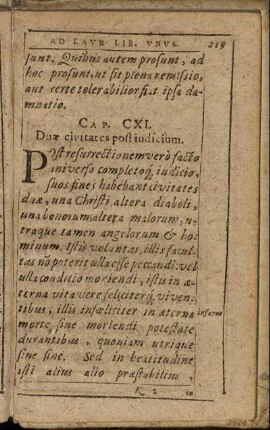 AD LAVR. LIB. VNVS. 219
sunt. Quibus autem prosunt, ad
hoc prosunt, ut sit plena remissio,
aut certe tolerabilior fiat ipsa da-
mnatio.
CAP. CXI.
Duæ civitates post iudicium.
POst resurrectionem verò facto
universo completoq́; iudicio,
suos fines habebunt civitates
duæ, una Christi altera diaboli,
una bonorum altera malorum, u-
traque tamen angelorum & ho-
minum. Istis voluntas, illis facul-
tas nō poterit ulla esse peccandi: vel
ulla conditio moriendi, istis in æ-
terna vita vere feliciterq́; viven-
tibus, illis infœliciter in æterna
morte sine moriendi potestate
durantibus, quoniam utrique
sine fine. Sed in beatitudine
isti alius alio præstabilius,
K 2 in